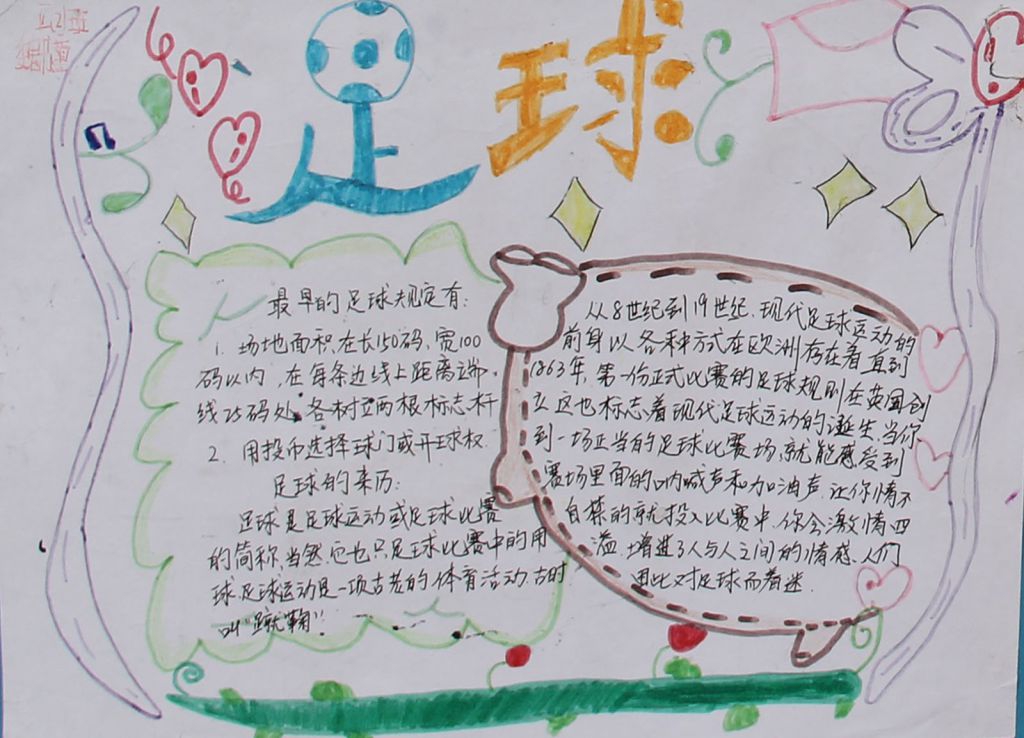 足球
最早的足球规定有:
1. 场地面积在长150码,宽100
码以内,在每条边线上距离端
线25码处,各树立两根标志杆
2. 用投币选择球门或开球权.
足球的来历:
足球是足球运动或足球比赛
的简称,当然,它也只足球比赛中的用
球.足球运动是一项古老的体育活动.古时
叫“蹴鞠”
从8世纪到19世纪,现代足球运动的
前身以各种方式在欧洲存在着直到
1863年,第一份正式比赛的足球规则在英国创
立这也标志着现代足球运动的诞生.当你
到一场正当的足球比赛场,就能感受到
赛场里面的呐喊声和加油声.让你情不
自禁的就投入比赛中.你会激情四
溢.增进了人与人之间的情感.人们
因此对足球而着迷.